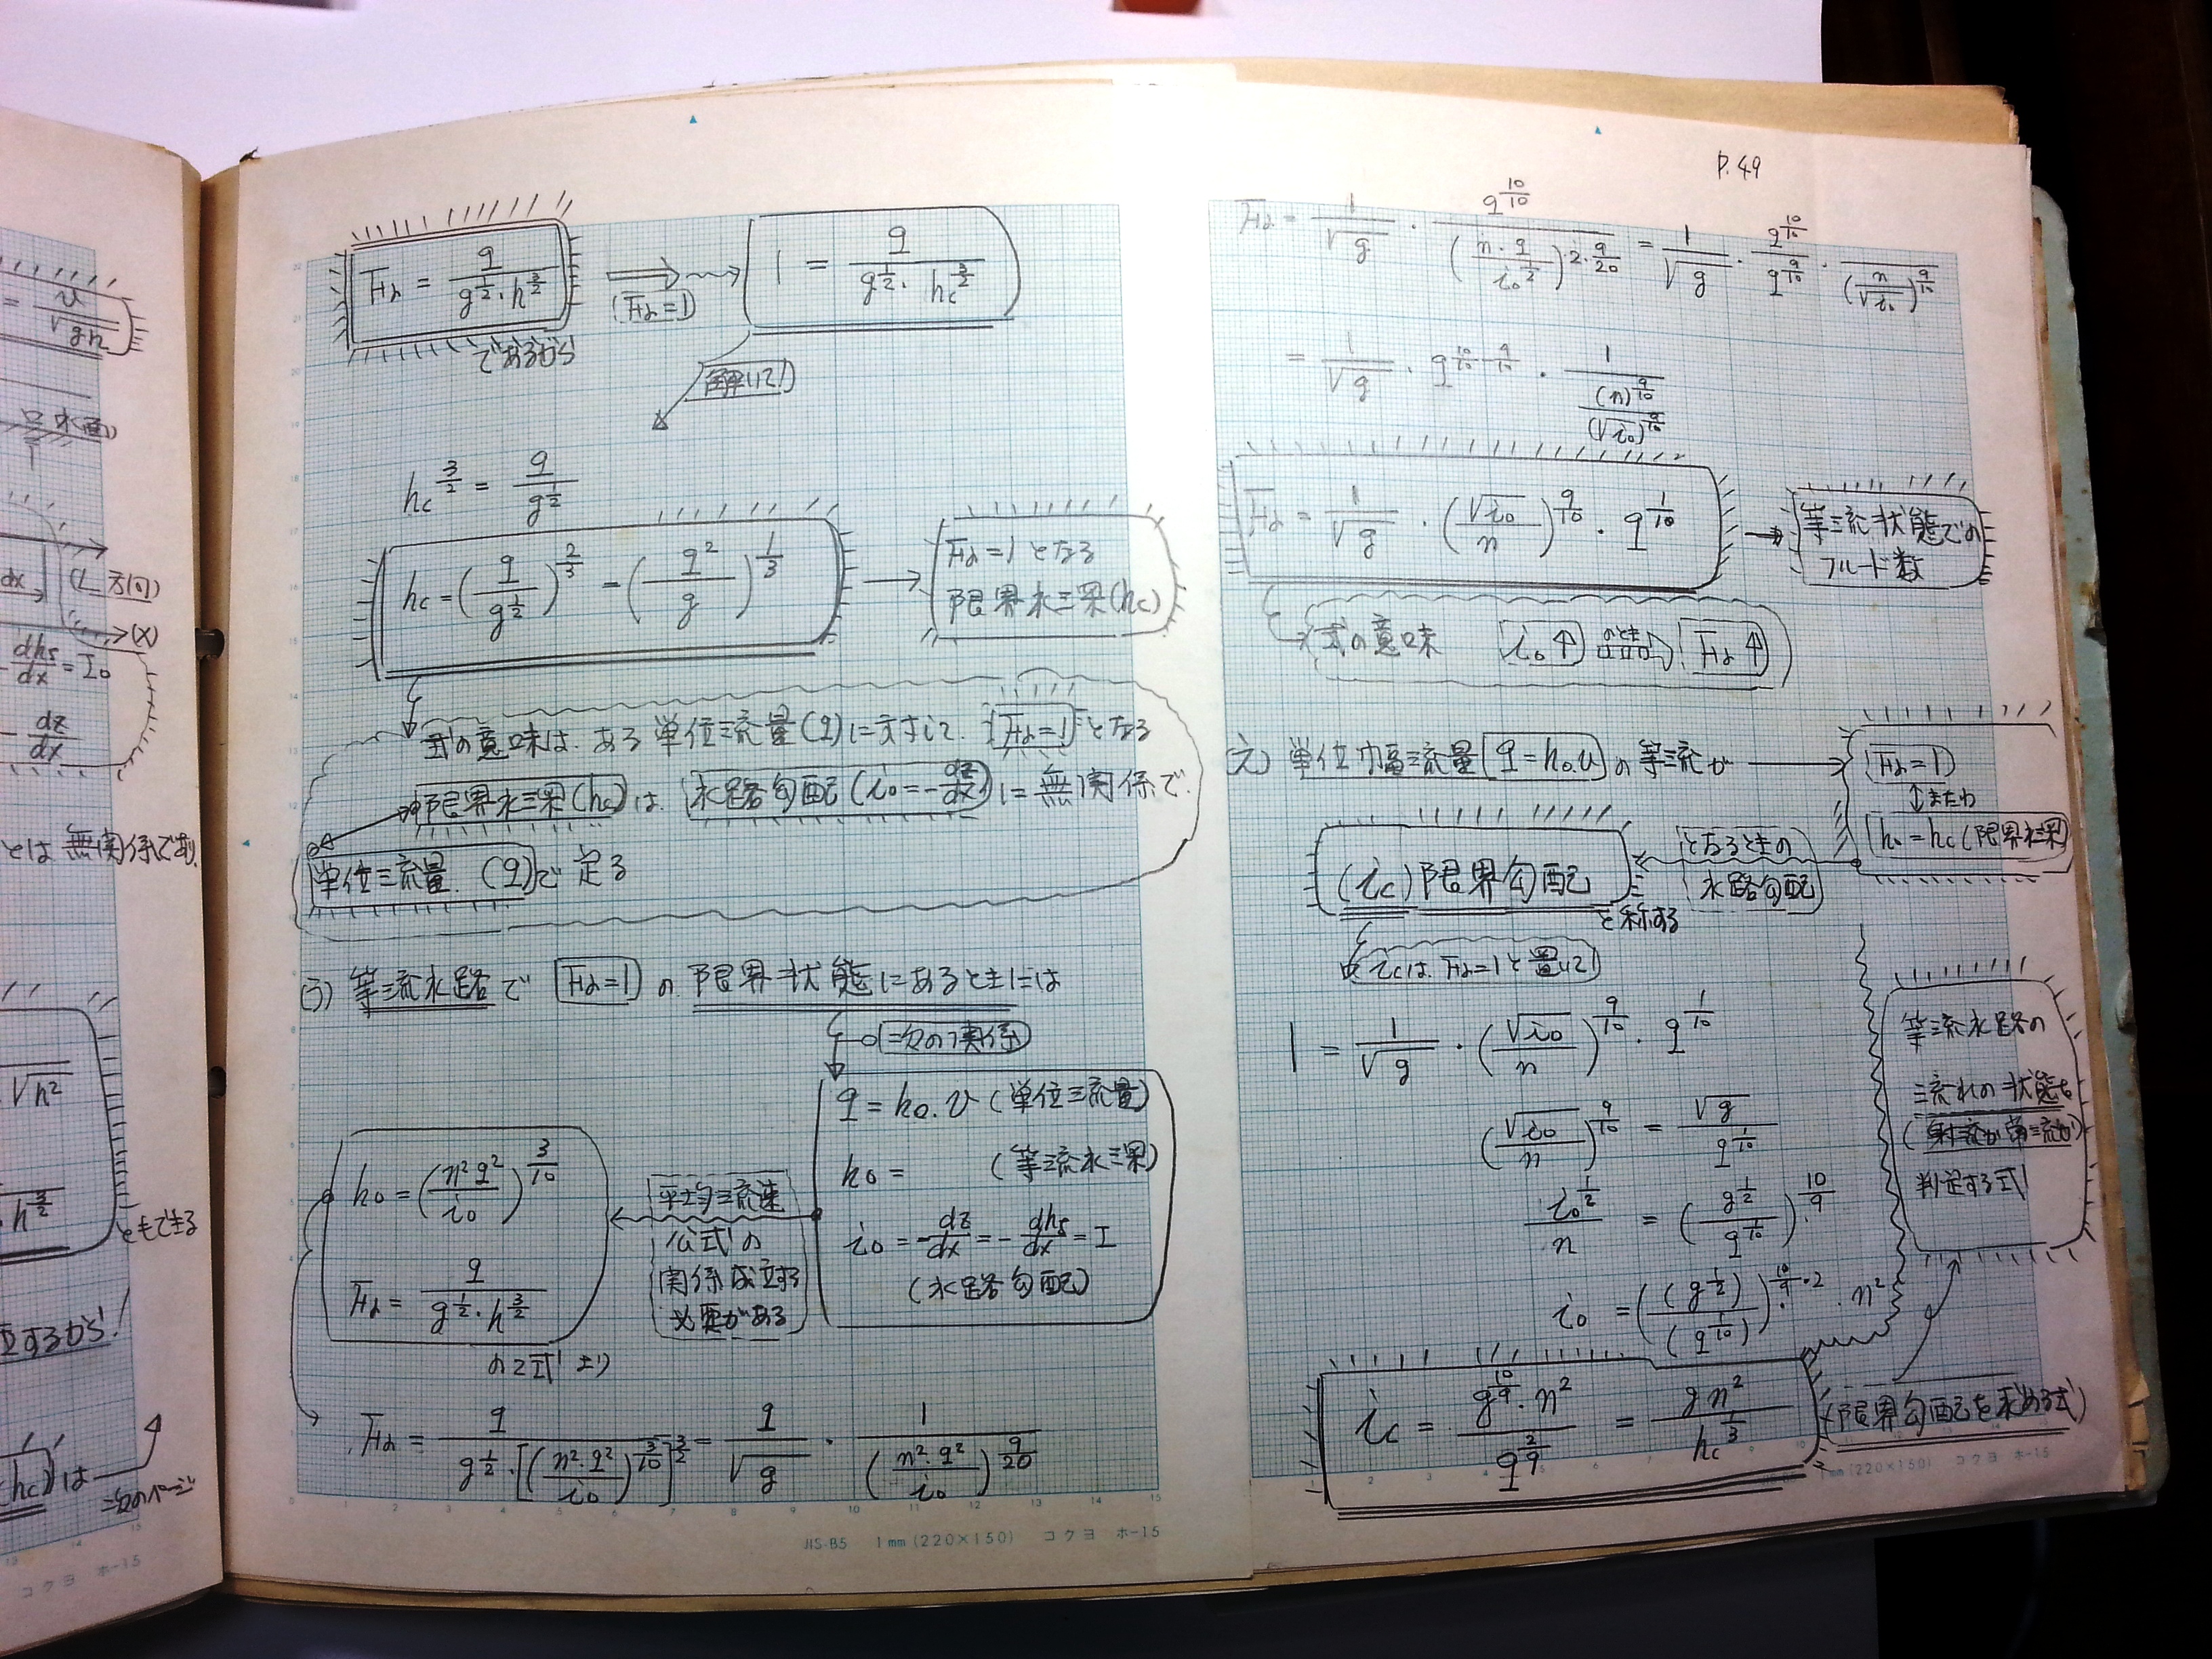 = v/√(gh)
水面
dx
(L方向)
→(x)
-dhs/dx = I₀
-dz/dx
とは無関係であり、
√h²
h^(3/2)
ともできる
立するから!
(hc)は
次のページ
Fr = q/(g^(1/2)・h^(3/2))
であるから
(Fr=1)
1 = q/(g^(1/2)・hc^(3/2))
解いて
hc^(3/2) = q/g^(1/2)
hc = (q/g^(1/2))^(2/3) = (q²/g)^(1/3)
Fr=1となる
限界水深(hc)
式の意味は、ある単位流量(q)に対して、Fr=1となる
限界水深(hc)は、水路勾配(i₀=-dz/dx)に無関係で、
単位流量(q)で定る
う) 等流水路で Fr=1 の限界状態にあるときには
次の関係
q = h₀.v (単位流量)
h₀ = (等流水深)
i₀ = -dz/dx = -dhs/dx = I
(水路勾配)
平均流速
公式の
関係成立する
必要がある
h₀ = (n²q²/i₀)^(3/10)
Fr = q/(g^(1/2)・h^(3/2))
の2式より
Fr = q/(g^(1/2)・[(n²・q²/i₀)^(3/10)]^(3/2)) = q/√g・1/(n²・q²/i₀)^(9/20)
JIS-B5 1mm(220×150) コクヨ ホ-15
P.49
Fr = 1/√g・q^(10/10)/(n・q/i₀^(1/2))^(2・9/20) = 1/√g・q^(10/10)/q^(9/10)・1/(n/√i₀)^(9/10)
= 1/√g・q^(10/10-9/10)・1/((n)^(9/10)/(√i₀)^(9/10))
Fr = 1/√g・(√i₀/n)^(9/10)・q^(1/10)
等流状態での
フルード数
式の意味 i₀↑ のとき Fr↑
え) 単位巾流量 q=h₀.v の等流が
Fr=1
↕または
h₀=hc(限界水深)
となるときの
水路勾配
(ic)限界勾配
と称する
icは、Fr=1と置いて
1 = 1/√g・(√i₀/n)^(9/10)・q^(1/10)
(√i₀/n)^(9/10) = √g/q^(1/10)
i₀^(1/2)/n = (g^(1/2)/q^(1/10))^(10/9)
i₀ = ((g^(1/2))/(q^(1/10)))^(10/9・2)・n²
ic = g^(10/9)・n²/q^(2/9) = gn²/hc^(1/3)
(限界勾配を求める式)
等流水路の
流れの状態を
(射流か常流か)
判定する式
1mm(220×150) コクヨ ホ-15
コクヨ ホ-15